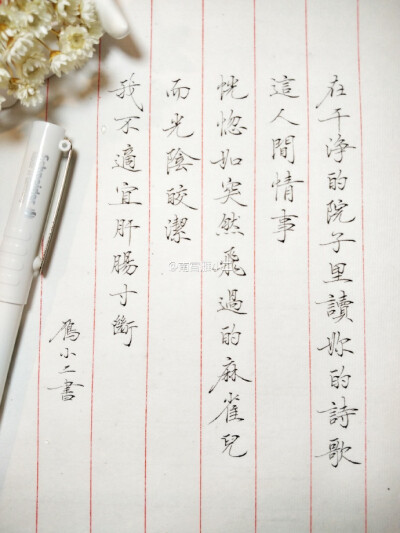 在干净的院子里讀妳的詩歌
這人間情事
恍惚如突然飛過的麻雀兒
而光陰皎潔
我不適宜肝腸寸斷
小二書
Schneider